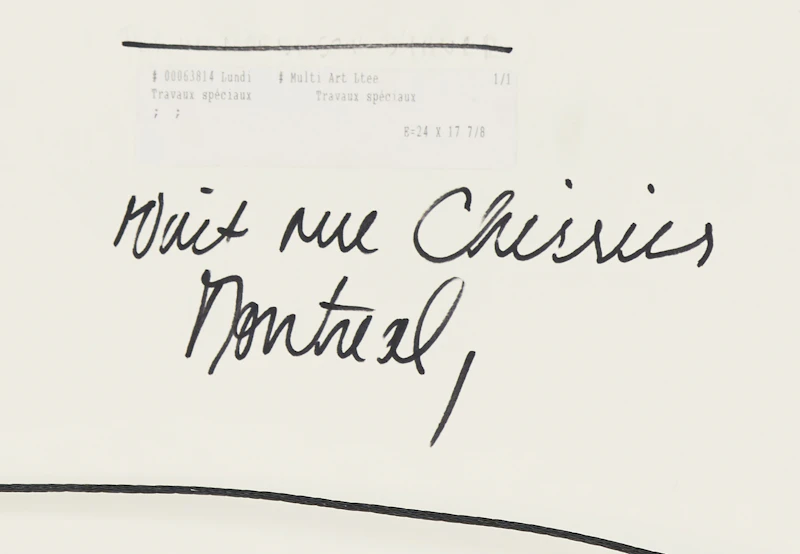 # 00863814 Lundi # Multi Art Ltee 1/1
Travaux spéciaux Travaux spéciaux
; ;
E=24 X 17 7/8
Nuit rue
Montreal,